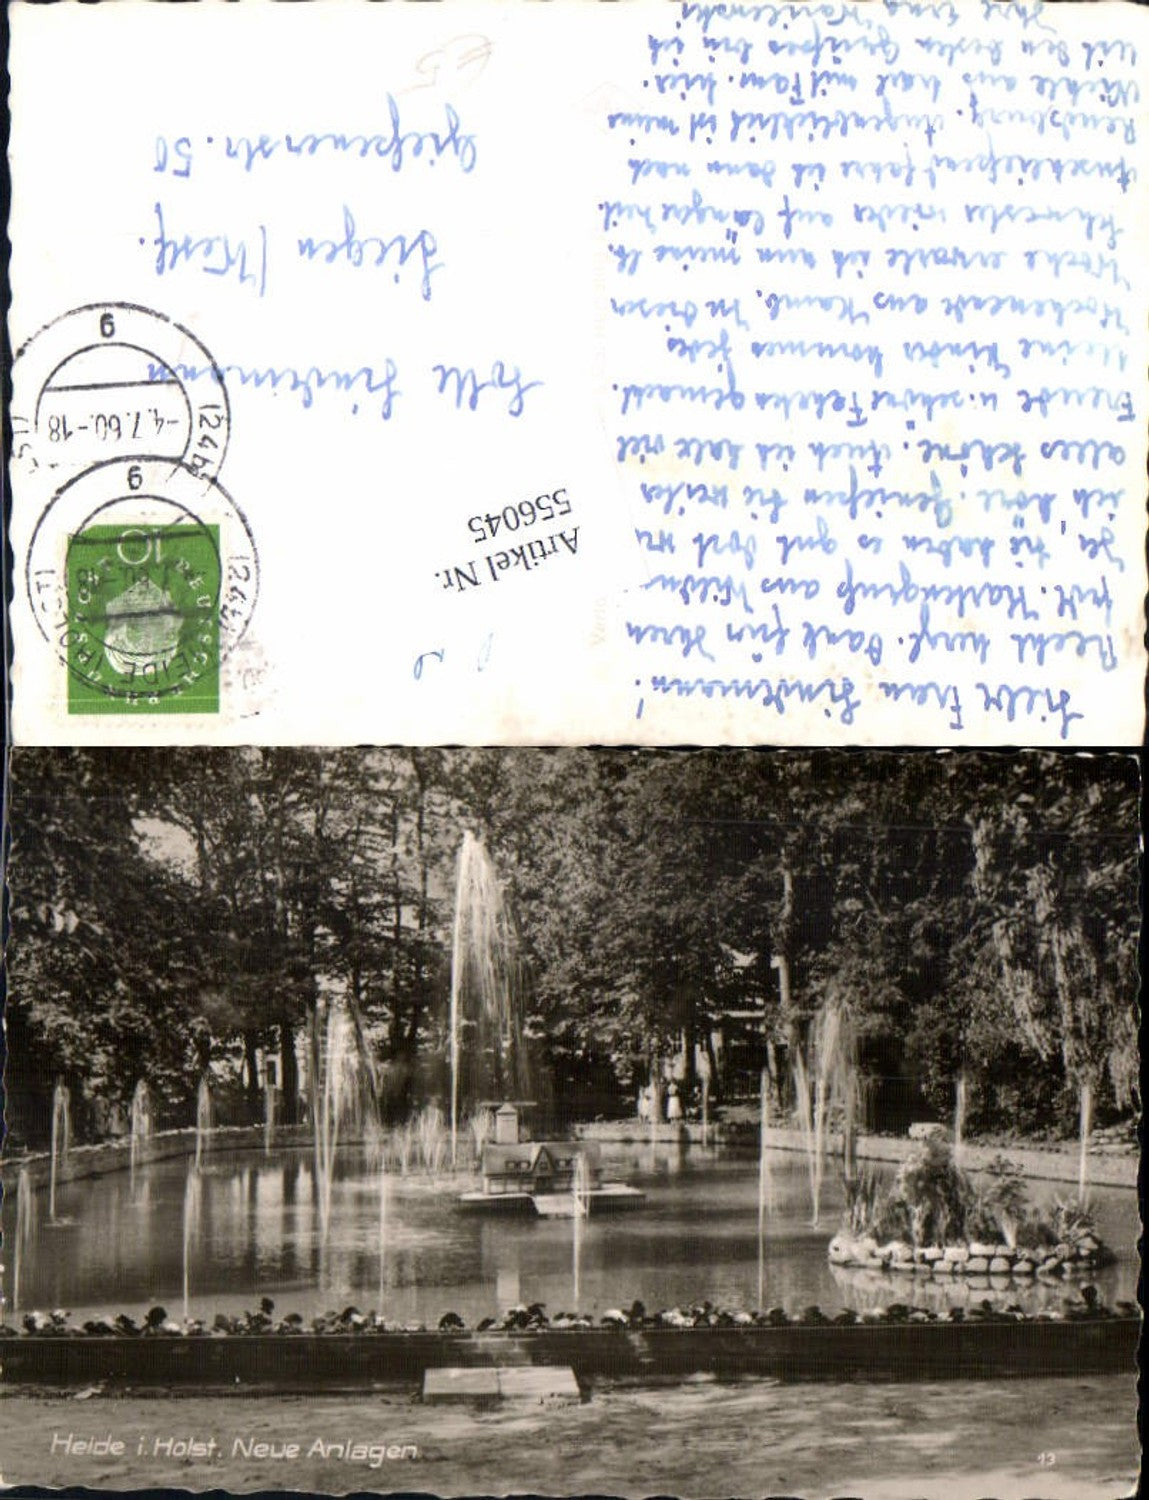 Liebe Frau Lindemann!
Recht herzl. Dank für Ihren
frdl. Kartengruß aus
Ja, Sie haben es gut dort wie
ich höre. Genießen Sie weiter
alles Schöne. Auch ich habe viel
Freude u. schöne gemacht.
Meine Kinder kommen jedes
Wochenende aus Hamb. In dieser
Woche erwarte ich nun meine lb.
Schwester wieder auf längere Zeit.
Anschließend fahre ich dann nach
Rendsburg. Augenblicklich ist meine
Nichte aus mit Fam. hier.
Mit den besten Grüßen bin ich
Ihre Erna
Lindemann
Siegen /Westf.
Gießenerstr. 50
Artikel Nr.
556045
-4.7.60.-18
HEIDE (HOLST)
10
Heide i. Holst. Neue Anlagen
13